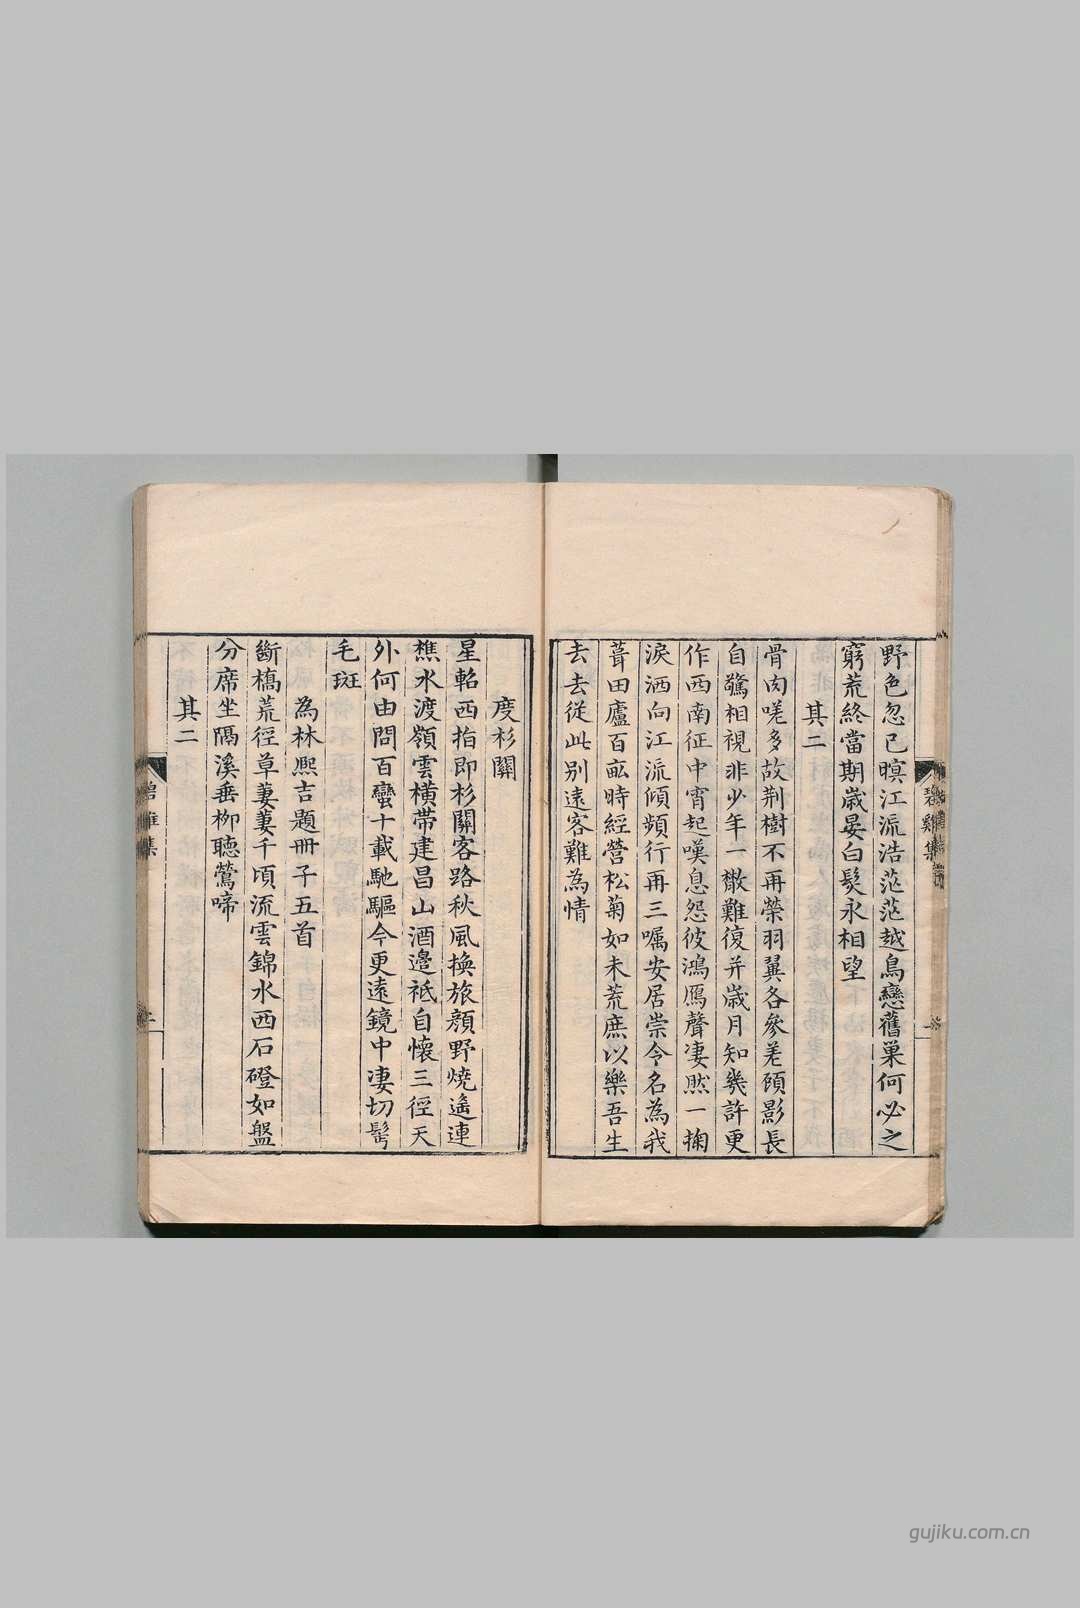 野色忽已暝江流浩茫茫越鳥戀舊巢何必之
窮荒終當期歲晏白髮永相望
其二
骨肉嗟多故荆樹不再榮羽翼各參差頋影長
自驚相視非少年一散難復并歲月知幾許更
作西南征中宵起嘆息怨彼鴻鴈聲凄然一掬
淚洒向江流傾頻行再三嘱安居崇令名為我
葺田廬百畝時經營松菊如未荒庶以樂吾生
去去從此别遠客難為情
度杉關
星軺西指即杉關客路秋風換旅顔野燒遙連
樵水渡嶺雲横帶建昌山酒邉祇自懷三徑天
外何由問百蠻十載馳驅今更遠鏡中凄切髩
毛斑
為林熙吉題冊子五首
斷橋荒徑草萋萋千頃流雲錦水西石磴如盤
分席坐隔溪垂柳聴鶯啼
其二
碧雞集
gujiku.com.cn